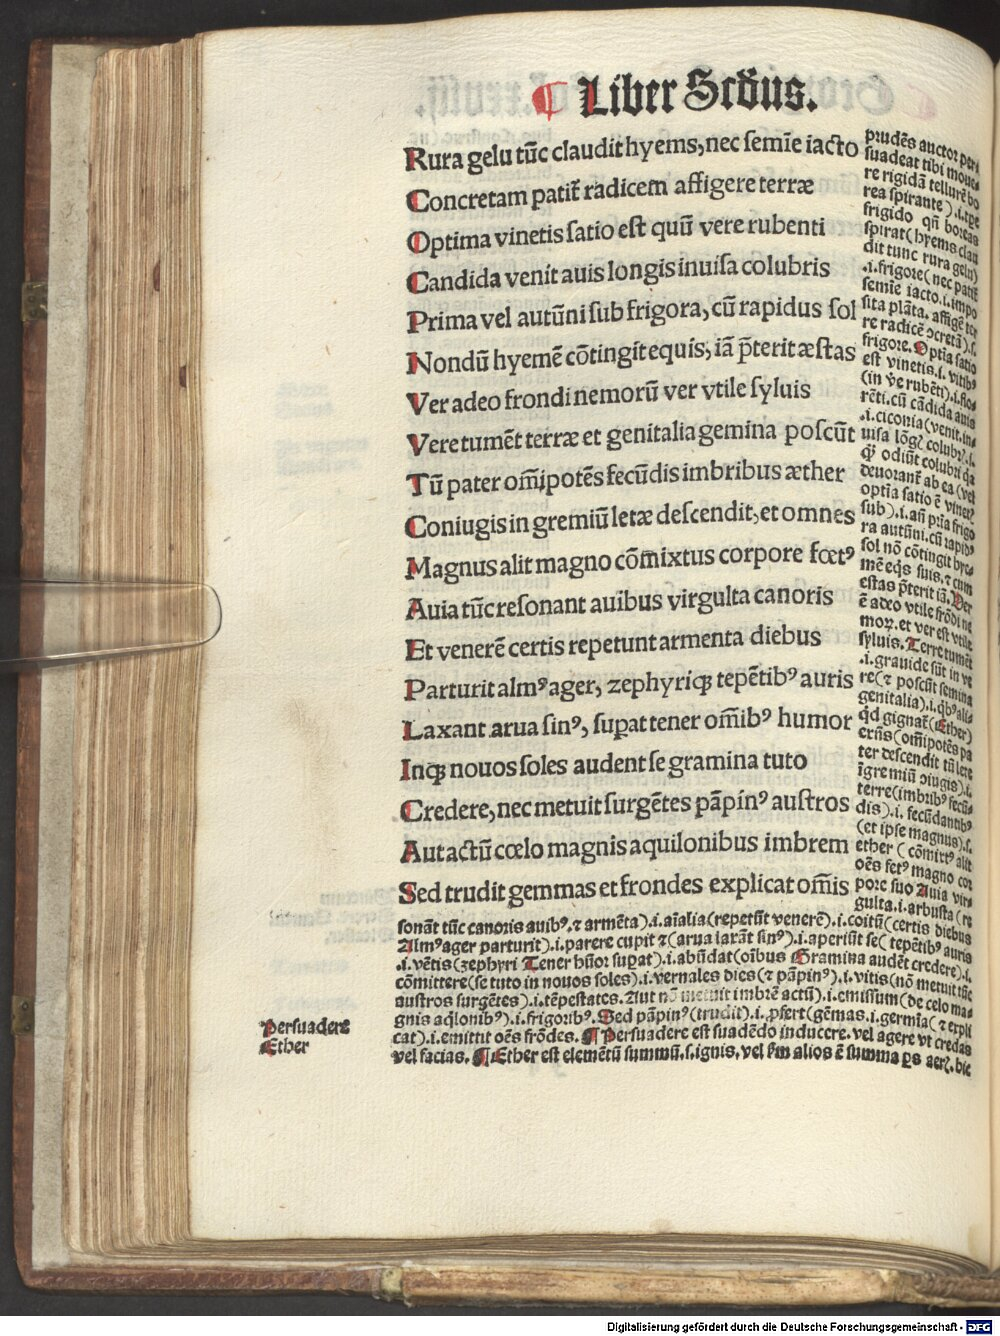 ¶ Liber Scd̄us.
Rura gelu tūc claudit hyems, nec semīe iacto
Concretam patit̄ radicem affigere terræ
Optima vinetis satio est quū vere rubenti
Candida venit auis longis inuisa colubris
Prima vel autūni sub frigora, cū rapidus sol
Nondū hyemē cōtingit equis, iā p̄terit æstas
Ver adeo frondi nemorū ver vtile syluis
Vere tumēt terræ et genitalia gemina poscūt
Tū pater om̄ipotēs fecūdis imbribus æther
Coniugis in gremiū letæ descendit, et omnes
Magnus alit magno cōmixtus corpore fœtꝰ
Auia tūc resonant auibus virgulta canoris
Et venerē certis repetunt armenta diebus
Parturit almꝰ ager, zephyriqꝫ tepētibꝰ auris
Laxant arua sinꝰ, suꝑat tener om̄ibꝰ humor
Inqꝫ nouos soles audent se gramina tuto
Credere, nec metuit surgētes pāpinꝰ austros
Aut actū cœlo magnis aquilonibus imbrem
Sed trudit gemmas et frondes explicat om̄is
prudēs auctor per
suadeat tibi moue
re rigidā tellurē bo
rea spirante).i.tꝑe
frigido qn̄ boreas
spirat(hyems clau
dit tunc rura gelu)
.i.frigore(nec patit̄
semīe iacto.i.impo
sita plāta. affigē ter
re radicē ↄcretā).s.
frigore. Optīa satio
est vinetis.i. vitibꝰ
(in ve rubēti).i.flo
rēti.cū cādida auis
.i.ciconia(venit.in
uisa lōgꝭ colubrꝭ.i.
ꝙ odiūt colubri qꝛ
deuorant̄ ab ea(vel
optīa satio ē vinetꝭ
sub).i.an̄ pͥa frigo
ra autūni.cū rapidꝰ
sol nō cōtingit hye
mē eqͥs suis.⁊ cum
estas p̄terit iā. Ver
ē adeo vtile frōdi ne
moꝝ.et ver est vtile
syluis. Terre tumēt
.i.grauide sūt in ve
re(⁊ poscūt semina
genitalia).i.qͥbꝰ ali
qͥd gignat̄(Ether)
eriis(om̄ipotēs pa
ter descendit tū lete
īgremiū ↄiugis).i.
terre(imbribꝰ fecū
dis).i. fecūdantibꝰ
(et ipse magnus).s.
ether (cōmixtꝰ alit
oēs fetꝰ magno cor
pore suo Auia vir
gulta.i.arbusta(re
sonāt tūc canoris auibꝰ.⁊ armēta).i.aīalia(repetūt venerē).i.coitū(certis diebus
Almꝰ ager parturit).i.parere cupit ⁊(arua laxāt sinꝰ).i.aperiūt se( tepētibꝰ auris
.i.vētis(zephyri Tener hūor suꝑat).i.abūdat(oībus Gramina audēt credere).i.
cōmittere(se tuto in nouos soles).i.vernales dies(⁊ pāpinꝰ).i.vitis(nō metuit tūc
austros surgētes).i.tēpestates. Aut nō metuit imbrē actū).i.emissum(de celo ma
gnis aqͥlonibꝰ).i.frigoribꝰ. Sed pāpinꝰ(trudit).i.ꝓfert(gēmas.i.germīa(⁊ expli
cat).i.emittit oēs frōdes. ¶ Persuadere est suadēdo inducere. vel agere vt credas
vel facias. ¶ Ether est elemētū summū.s.ignis. vel ẜm alios ē summa ꝑs aerꝭ. hic
Persuadere
Ether